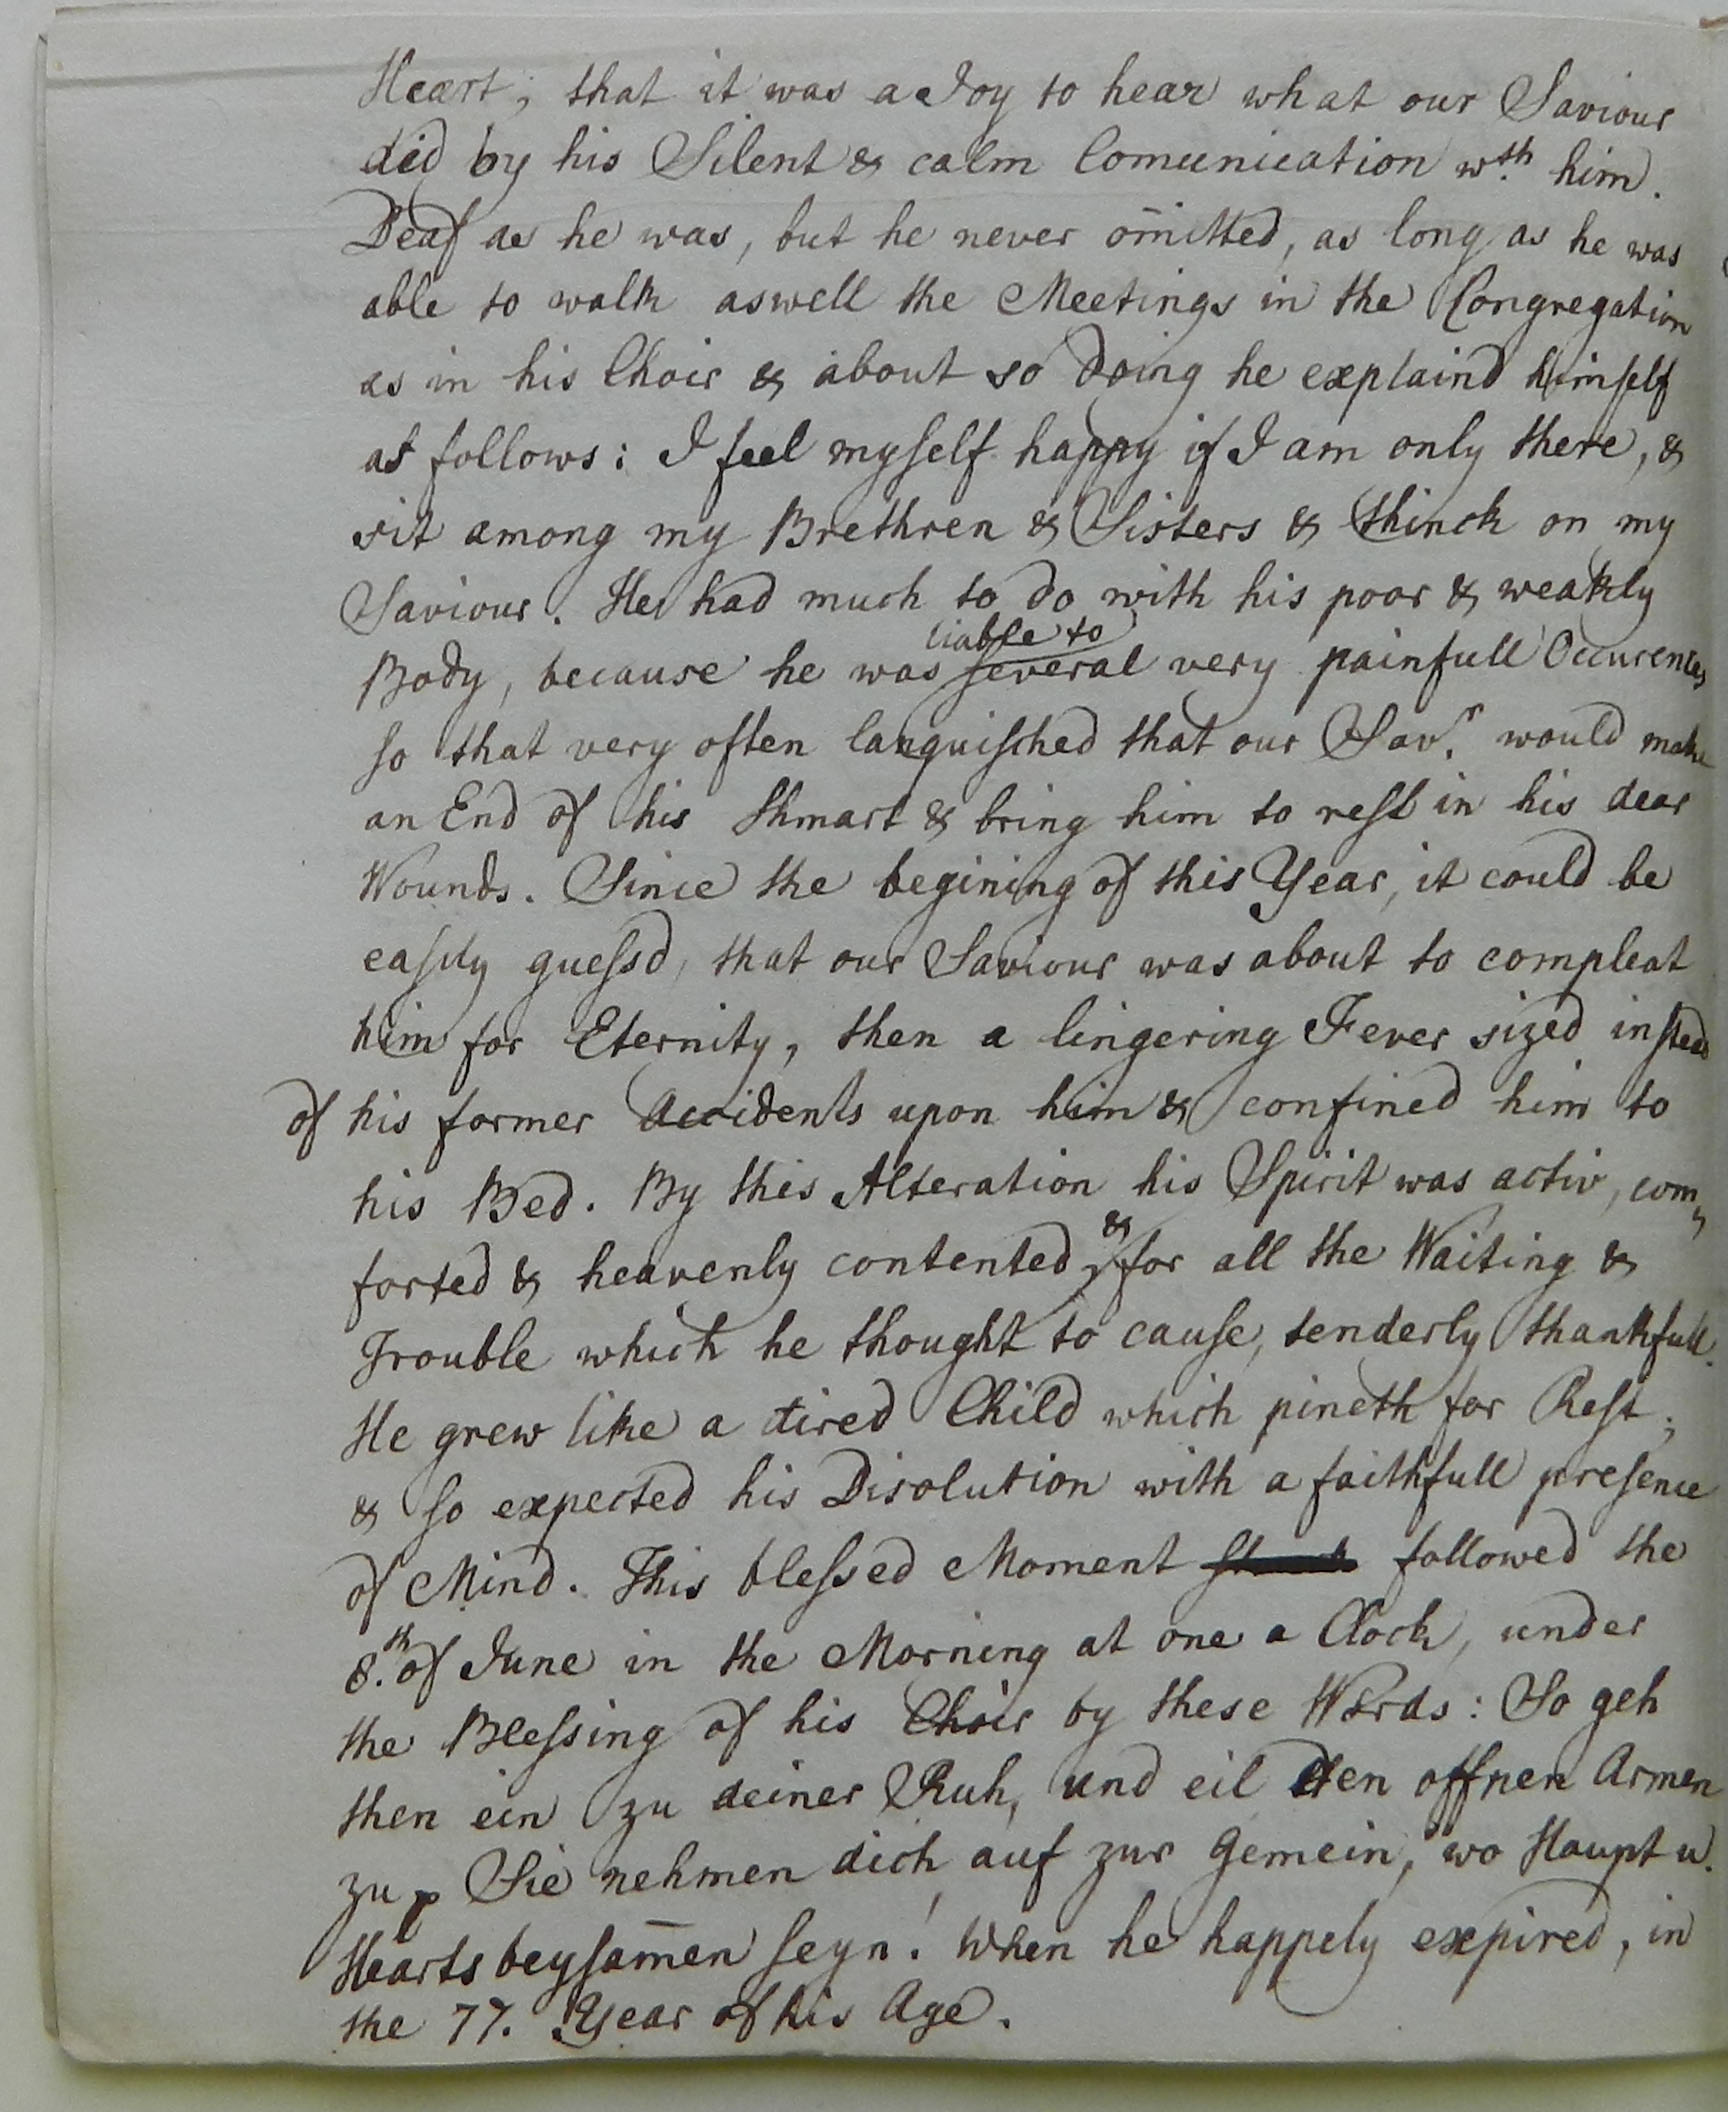 Heart; that it was a Joy to hear what our Saviour
did by his Silent & calm Comunication wth. him.
Deaf as he was, but he never om̄itted, as long as he was
able to walk aswell the Meetings in the Congregation
as in his Choir & about so doing he explaind himself
as follows: I feel myself happy if I am only there, &
sit among my Brethren & Sisters & thinck on my
Saviour. He had much to do with his poor & weakly
liable to
Body, because he was several very painfull Occurences
so that very often languisched that our Savr. would make
an End of his Shmart & bring him to rest in his dear
Wounds. Since the begining of this Year, it could be
easily guessd, that our Saviour was about to compleat
him for Eternity, then a lingering Fever sized instead
of his former Accidents upon him & confined him to
his Bed. By this Alteration his Spirit was activ, com„
forted & heavenly contented, & for all the Waiting &
Trouble which he thought to cause, tenderly thankfull.
He grew like a tired Child which pineth for Rest;
& so expected his Disolution with a faithfull presence
of Mind. This blessed Moment followed the
8.th of June in the Morning at one a Clock, under
the Blessing of his Choir by these Words: So geh
then ein zu deiner Ruh, und eil den offnen Armen
zu, Sie nehmen dich auf zur Gemein, wo Haupt u.
Hearts beysam̄en seyn! When he happely expired, in
the 77. Year of his Age.